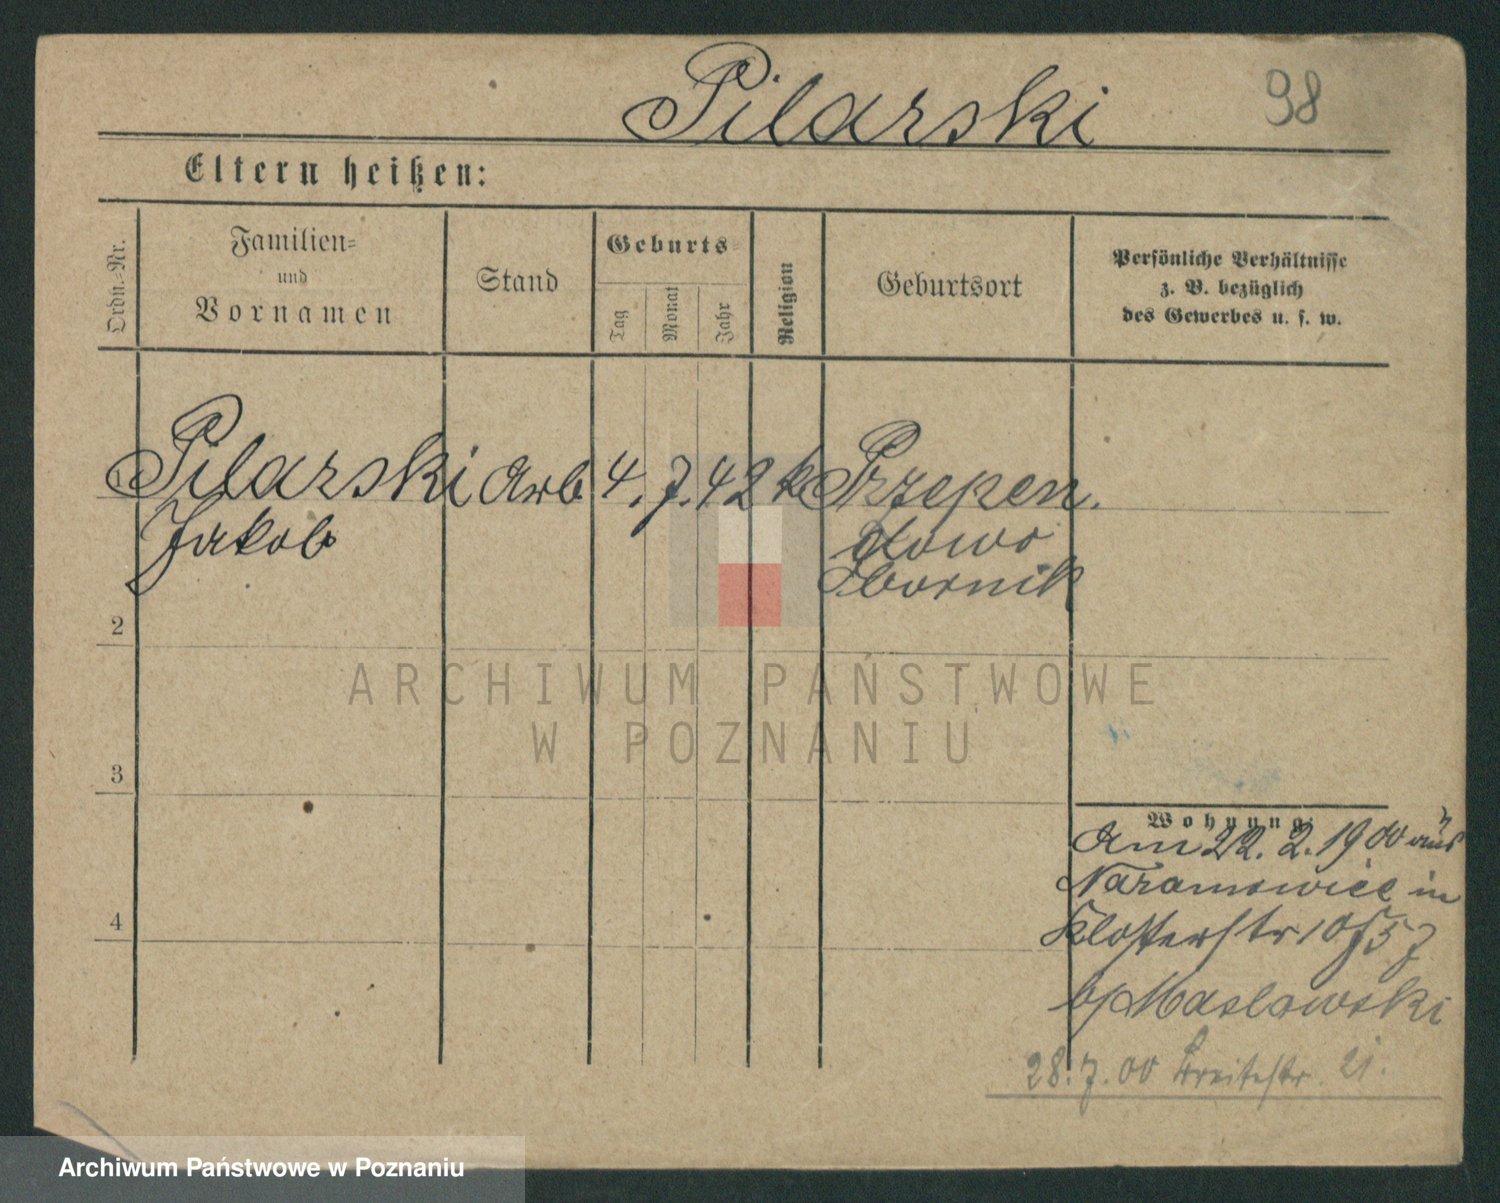 Pilarski 98
Eltern heißen:
Ordn.-Nr.
Familien-
und
Vornamen
Stand
Geburts-
Tag
Monat
Jahr
Religion
Geburtsort
Persönliche Verhältnisse
z. B. bezüglich
des Gewerbes u. s. w.
1 Pilarski Arb 4. 7. 42 k Przepen.
Jakob
dowo
Obornik
2
3
4
Wohnung:
Am 22. 2. 1900 aus
Naramowice in
Klosterstr 10
b/ Maslowski
28. 7. 00 Breitestr. 21.
ARCHIWUM PAŃSTWOWE
W POZNANIU
Archiwum Państwowe w Poznaniu